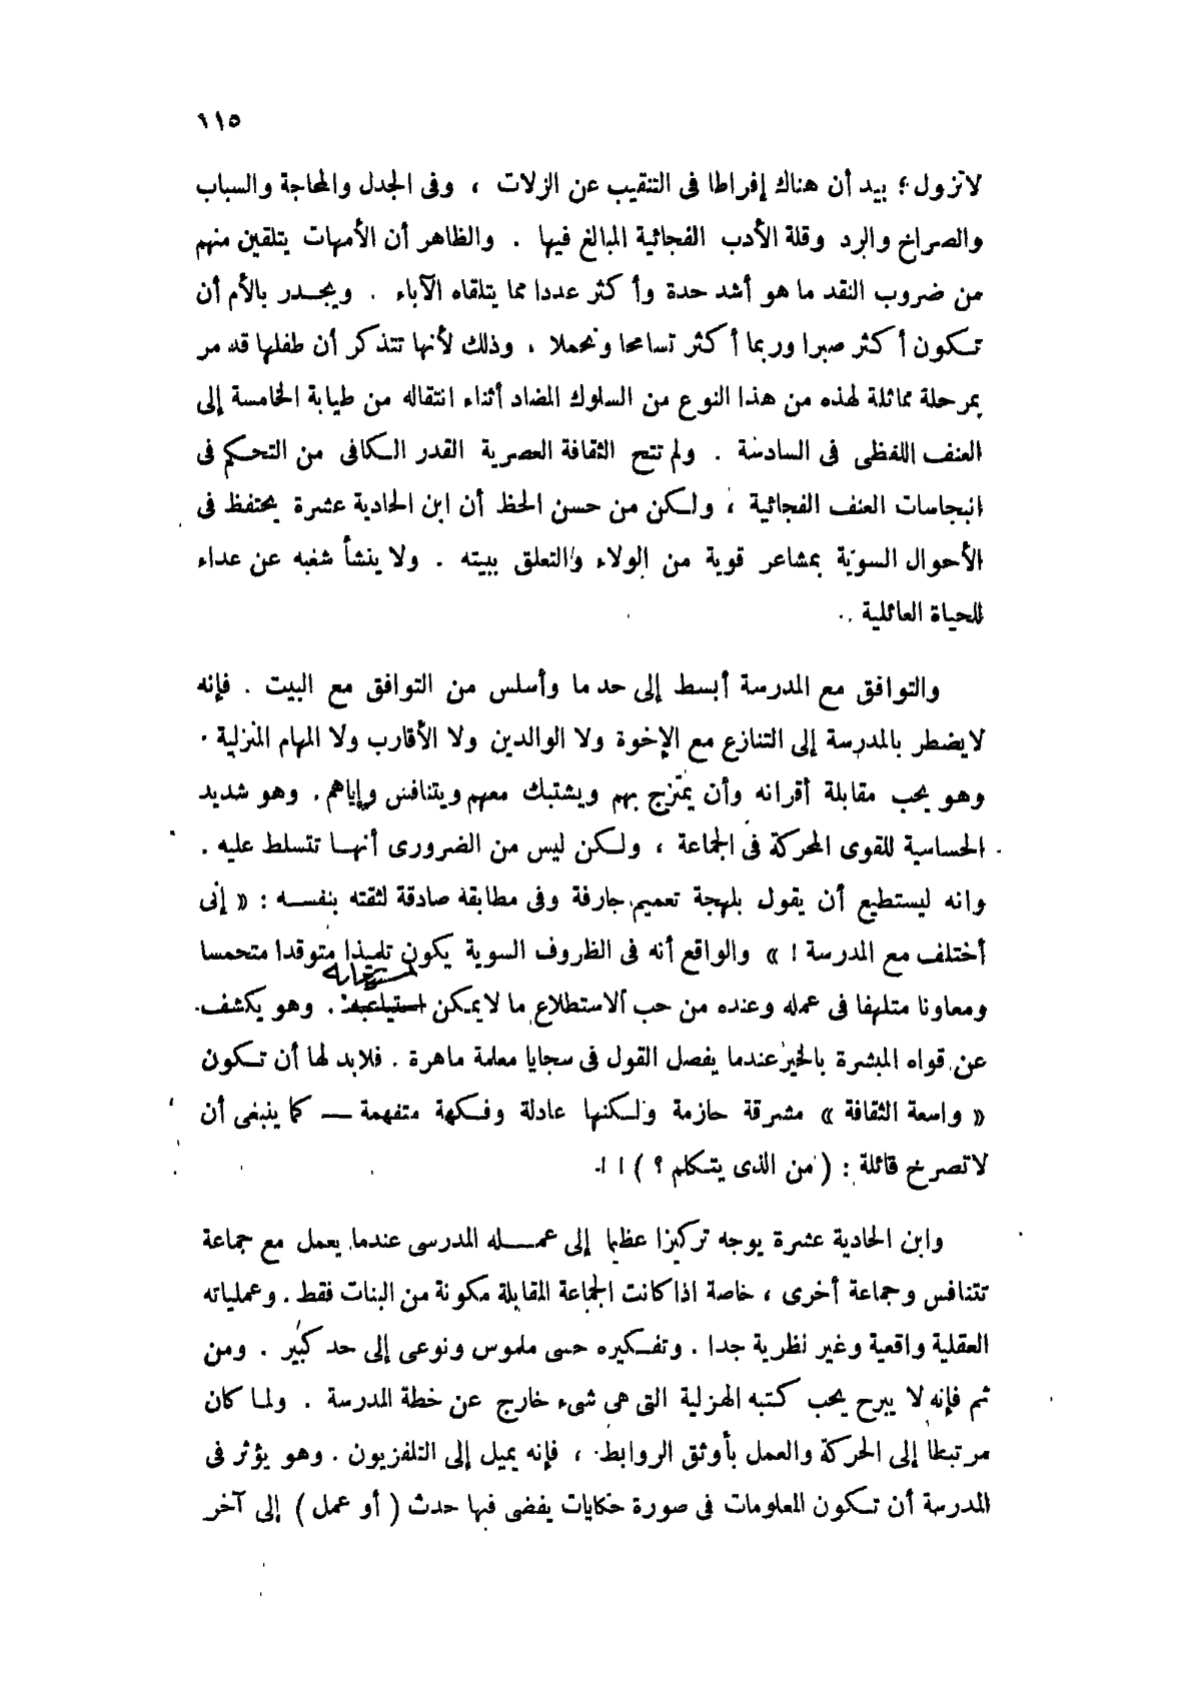 ١١٥
لاتزول ؛ بيد أن هناك إفراطا فى التنقيب عن الزلات ، وفى الجدل والمحاجة والسباب
والصراخ والرد وقلة الأدب الفجائية المبالغ فيها . والظاهر أن الأمهات يتلقين منهم
من ضروب النقد ما هو أشد حدة وأكثر عددا مما يتلقاه الآباء . ويجدر بالأم أن
تكون أكثر صبرا وربما أكثر تسامحا وتحملا ، وذلك لأنها تتذكر أن طفلها قد مر
بمرحلة مماثلة لهذه من هذا النوع من السلوك المضاد أثناء انتقاله من طيابة الخامسة إلى
العنف اللفظى فى السادسة . ولم تتح الثقافة العصرية القدر الكافى من التحكم فى
انبجاسات العنف الفجائية ، ولكن من حسن الحظ أن ابن الحادية عشرة يحتفظ فى
الأحوال السوية بمشاعر قوية من الولاء والتعلق ببيته . ولا ينشأ شغبه عن عداء
للحياة العائلية .
والتوافق مع المدرسة أبسط إلى حد ما وأسلس من التوافق مع البيت . فإنه
لايضطر بالمدرسة إلى التنازع مع الإخوة ولا الوالدين ولا الأقارب ولا المهام المنزلية .
وهو يحب مقابلة أقرانه وأن يمتزج بهم ويشتبك معهم ويتنافس وإياهم . وهو شديد
الحساسية للقوى المحركة فى الجماعة ، ولكن ليس من الضرورى أنها تتسلط عليه .
وانه ليستطيع أن يقول بلهجة تعميم جارفة وفى مطابقة صادقة لثقته بنفسه : « إنى
أختلف مع المدرسة ! » والواقع أنه فى الظروف السوية يكون تلميذا متوقدا متحمسا
ومعاونا متلهفا فى عمله وعنده من حب الاستطلاع ما لايمكن استيعابه . وهو يكشف
عن قواه المبشرة بالخير عندما يفصل القول فى سجايا معلمة ماهرة . فلابد لها أن تكون
« واسعة الثقافة » مشرقة حازمة ولكنها عادلة وفكهة متفهمة — كما ينبغى أن
لاتصرخ قائلة : ( من الذى يتكلم ؟ ) ! !
وابن الحادية عشرة يوجه تركيزا عظيما إلى عمله المدرسى عندما يعمل مع جماعة
تتنافس وجماعة أخرى ، خاصة اذا كانت الجماعة المقابلة مكونة من البنات فقط . وعملياته
العقلية واقعية وغير نظرية جدا . وتفكيره حسى ملموس ونوعى إلى حد كبير . ومن
ثم فإنه لا يبرح يحب كتبه الهزلية التى هى شىء خارج عن خطة المدرسة . ولما كان
مرتبطا إلى الحركة والعمل بأوثق الروابط ، فإنه يميل إلى التلفزيون . وهو يؤثر فى
المدرسة أن تكون المعلومات فى صورة حكايات يفضى فيها حدث ( أو عمل ) إلى آخر